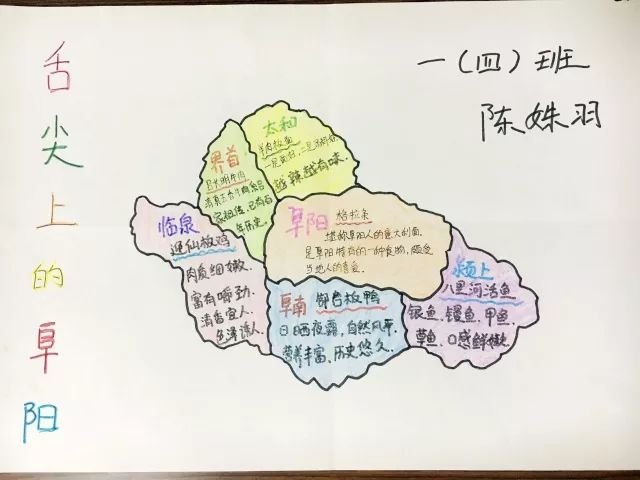 舌尖上的阜阳
一(四)班
陈姝羽
太和
羊肉板面
越辣越有味.
界首
年历史.
临泉
迎仙板鸡
肉质细嫩.
富有嚼劲.
清香宜人.
色泽诱人.
阜阳
格拉条
堪称阜阳人的意大利面.
是阜阳特有的一种食物,颇受
当地人的喜爱.
阜南
郜台板鸭
日晒夜露,自然风干.
营养丰富,历史悠久.
颍上
八里河活鱼
银鱼、鳗鱼、甲鱼
草鱼、口感鲜嫩.